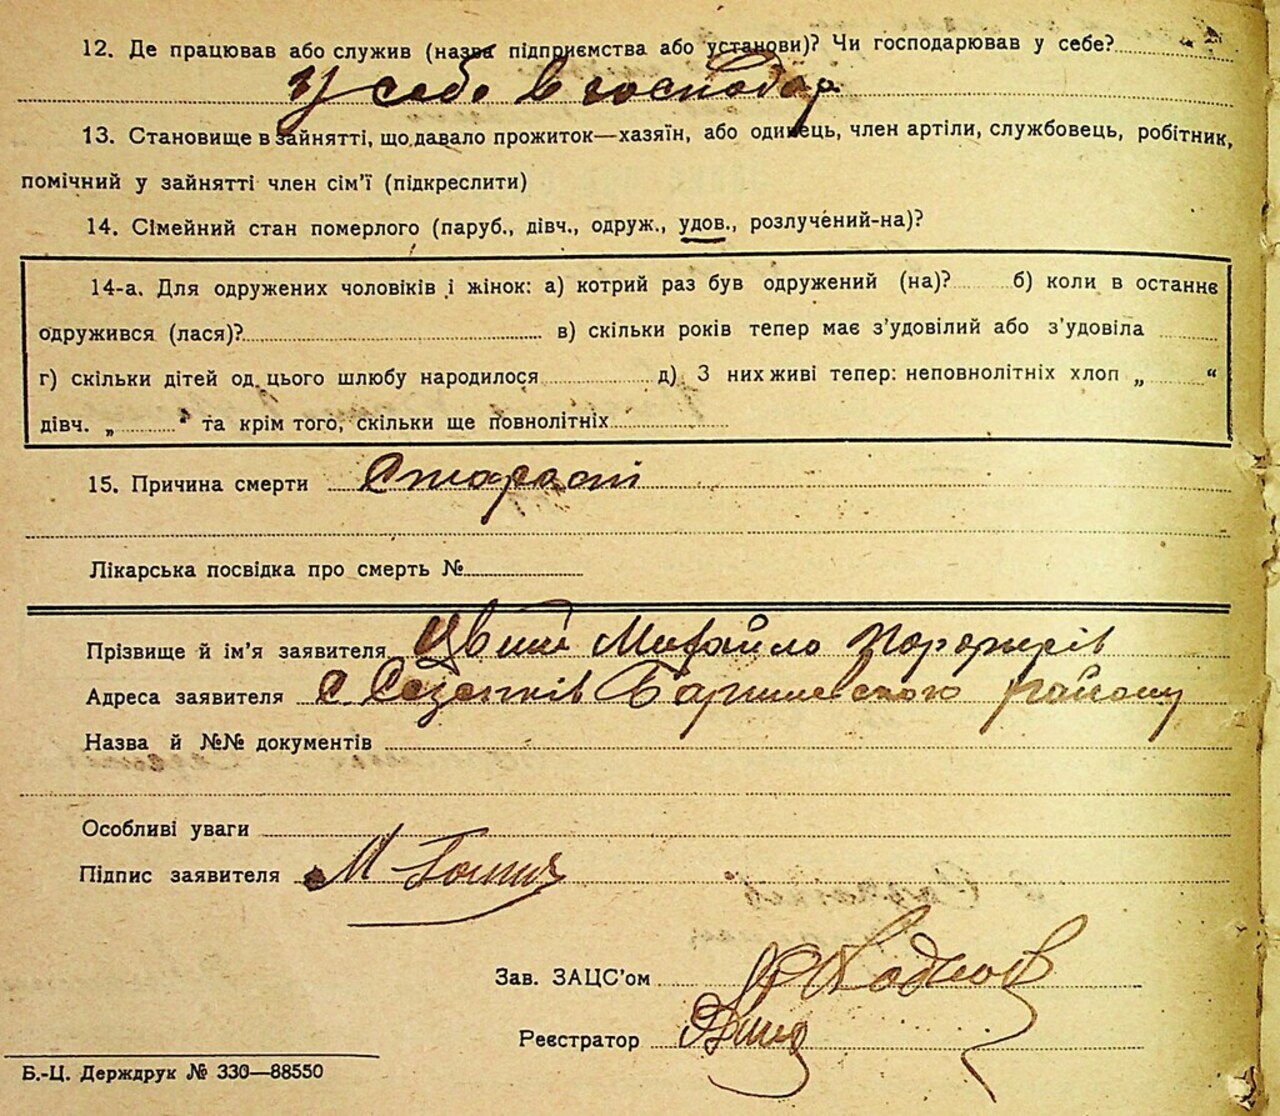 12. Де працював або служив (назва підприємства або установи)? Чи господарював у себе?
У себе в господар.
13. Становище в зайнятті, що давало прожиток—хазяїн, або одинець, член артіли, службовець, робітник,
помічний у зайнятті член сім’ї (підкреслити)
14. Сімейний стан померлого (паруб., дівч., одруж., удов., розлучений-на)?
14-а. Для одружених чоловіків і жінок: а) котрий раз був одружений (на)? б) коли в останнє
одружився (лася)? в) скільки років тепер має з’удовілий або з’удовіла
г) скільки дітей од цього шлюбу народилося д) З них живі тепер: неповнолітніх хлоп „ “
дівч. „ “ та крім того, скільки ще повнолітніх
15. Причина смерти Старості
Лікарська посвідка про смерть №
Прізвище й ім’я заявителя Михайло
Адреса заявителя с Сезенків Баришевского району
Назва й №№ документів
Особливі уваги
Підпис заявителя М
Зав. ЗАЦС’ом
Реєстратор
Б.-Ц. Держдрук № 330—88550